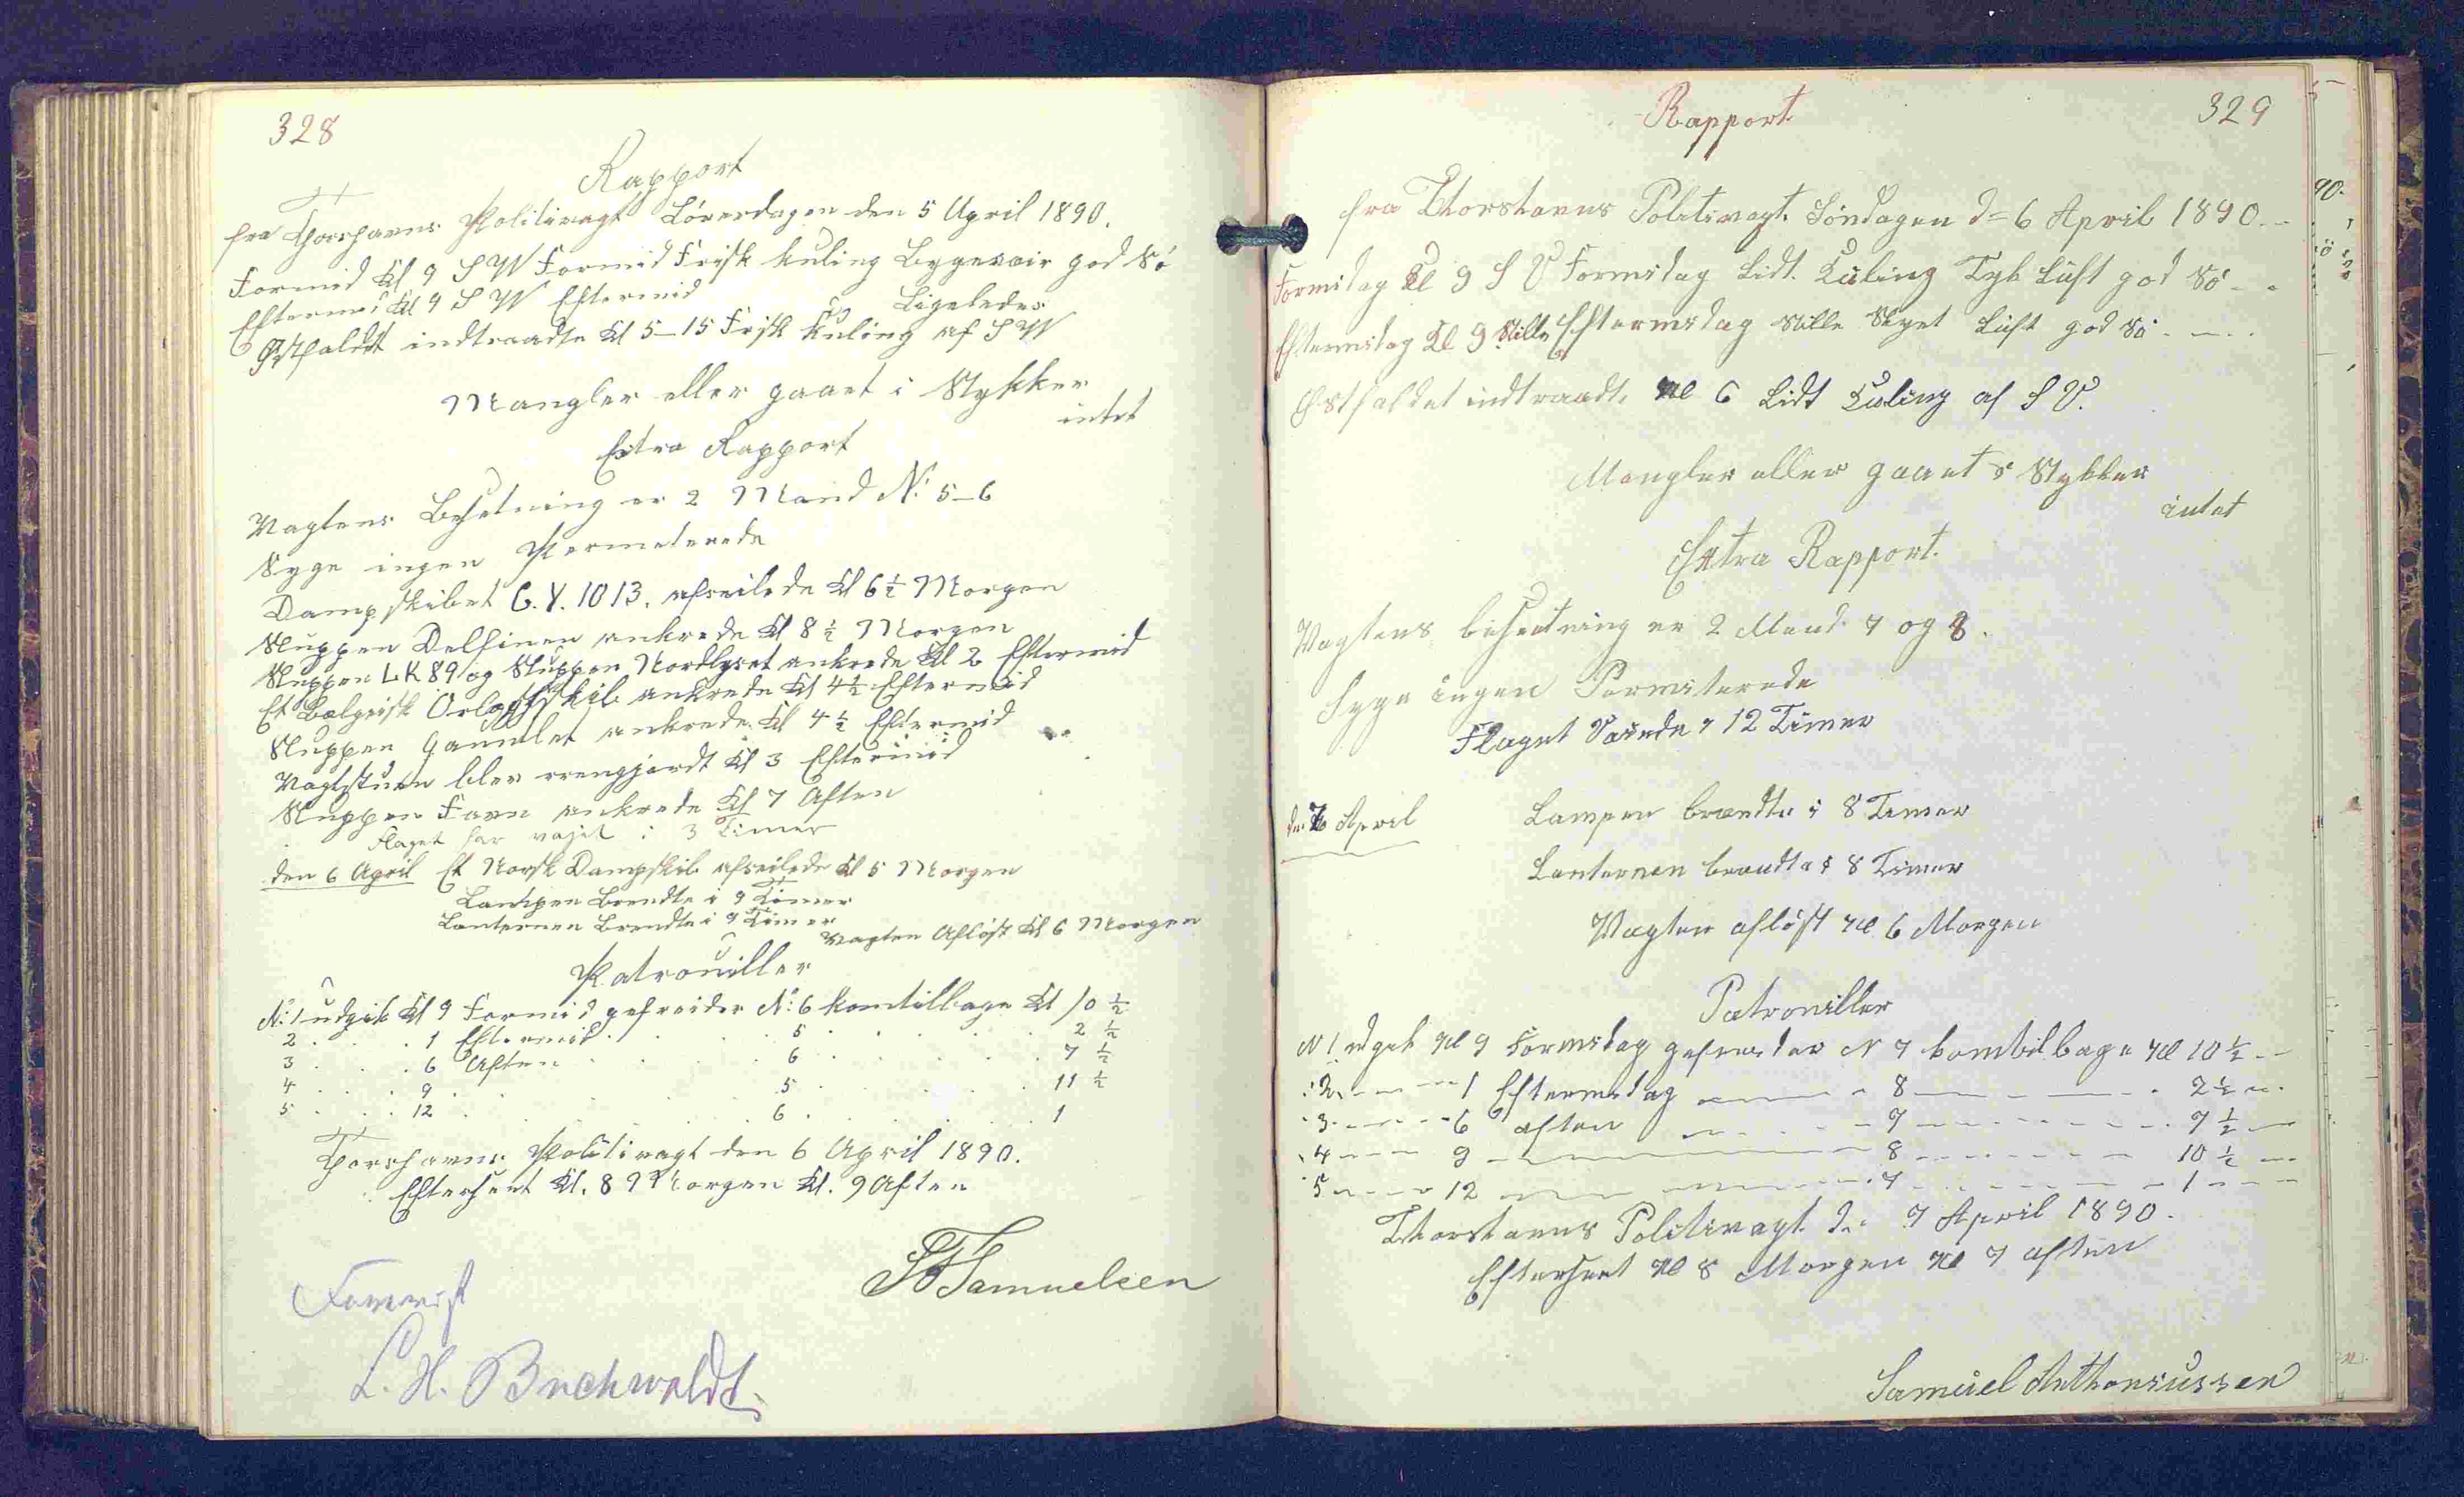 328
Rapport
fra Thorshavns Politivagt Løverdagen den 5 April 1890.
Formid Kl 9 S W Formid Frisk Kuling Bygevair god Sø
Eftermid Kl 9 S W Eftermid do Ligeledes
Østfaldet indtraadte Kl 5-15 Frisk Kuling af S W
Mangler eller gaaet i Stykker
intet
Extra Rapport
Vagtens Besetning er 2 Mand No: 5-6
Syge ingen Permeterede
Dampskibet C. Y. 1013. afseilede Kl 6½ Morgen
Sluppen Delfinen ankrede Kl 8½ Morgen
Sluppen LK 89 og Sluppen Nordlyset ankrede Kl 2 Eftermid
Et Belgisk Orlogsskib ankrede Kl 4½ Eftermid
Sluppen ankrede Kl 4½ Eftermid
Vagtstuen blev reengjordt Kl 3 Eftermid
Sluppen ankrede Kl 7 Aften
Flaget har vajet i 3 Timer
den 6 April Et Norsk Dampskib afseilede Kl 5 Morgen
Lampen Brendte i 9 Timer
Lanternen Brendte i 9 Timer
Vagten Afløst Kl 6 Morgen
Patrouiller
No: 1 udgik Kl 9 Formid gefreider No: 6 kom tilbage Kl 10½
2 . . . 1 Eftermid . . . 5 . . . 2½
3 . . . 6 Aften . . . 6 . . . 7½
4 . . . 9 . . . 5 . . . 11½
5 . . . 12 . . . 6 . . . 1
Thorshavns Politivagt den 6 April 1890.
Efterseet Kl. 8 Morgen Kl. 9 Aften
Samuelsen
L. H. Buchwaldt
329
Rapport
fra Thorshavns Politivagt. Søndagen d= 6 April 1890.-
Formidag Kl 9 S V Formidag Lidt. Kuling Tyk Luft god Sø - -
Eftermidag Kl 9 Stille Eftermidag Stille Skyet Luft god Sø - -
Østfaldet indtraadte Kl 6 Lidt Kuling af S V.
Mangler eller gaaet i Stykker
intet
Extra Rapport.
Vagtens besætning er 2 Mand 7 og 8.
Syge ingen Permiterede
Flaget Vaiede i 12 Timer
den 7 April Lampen brændte i 8 Timer
Lanternen brændte i 8 Timer
Vagten afløst Kl 6 Morgen
Patrouiller
N 1 udgik Kl 9 Formidag gefreider N 7 kom tilbage Kl 10½ --
2 - - - 1 Eftermidag - - - 8 - - - 2½ -
3 - - - 6 aften - - - 7 - - - 7½ -
4 - - - 9 - - - 8 - - - 10½ -
5 - - - 12 - - - 7 - - - 1 - -
Thorshavns Politivagt d. 7 April 1890.
Efterseet Kl 8 Morgen Kl 7 aften
Samuel Anthoniussen